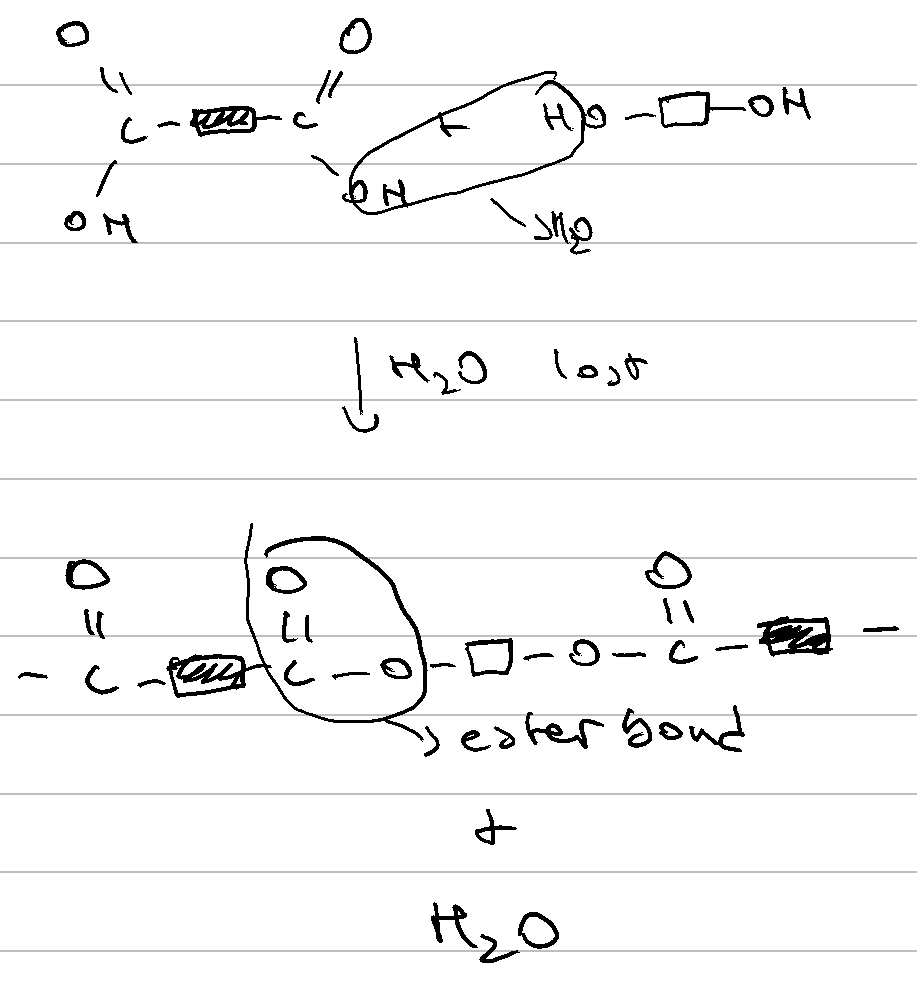 O O
|| ||
C - - C + HO - - OH
OH OH
→ H₂O
↓ H₂O lost
O O O
|| || ||
- C - - C - O - - O - C - -
→ ester bond
+
H₂O